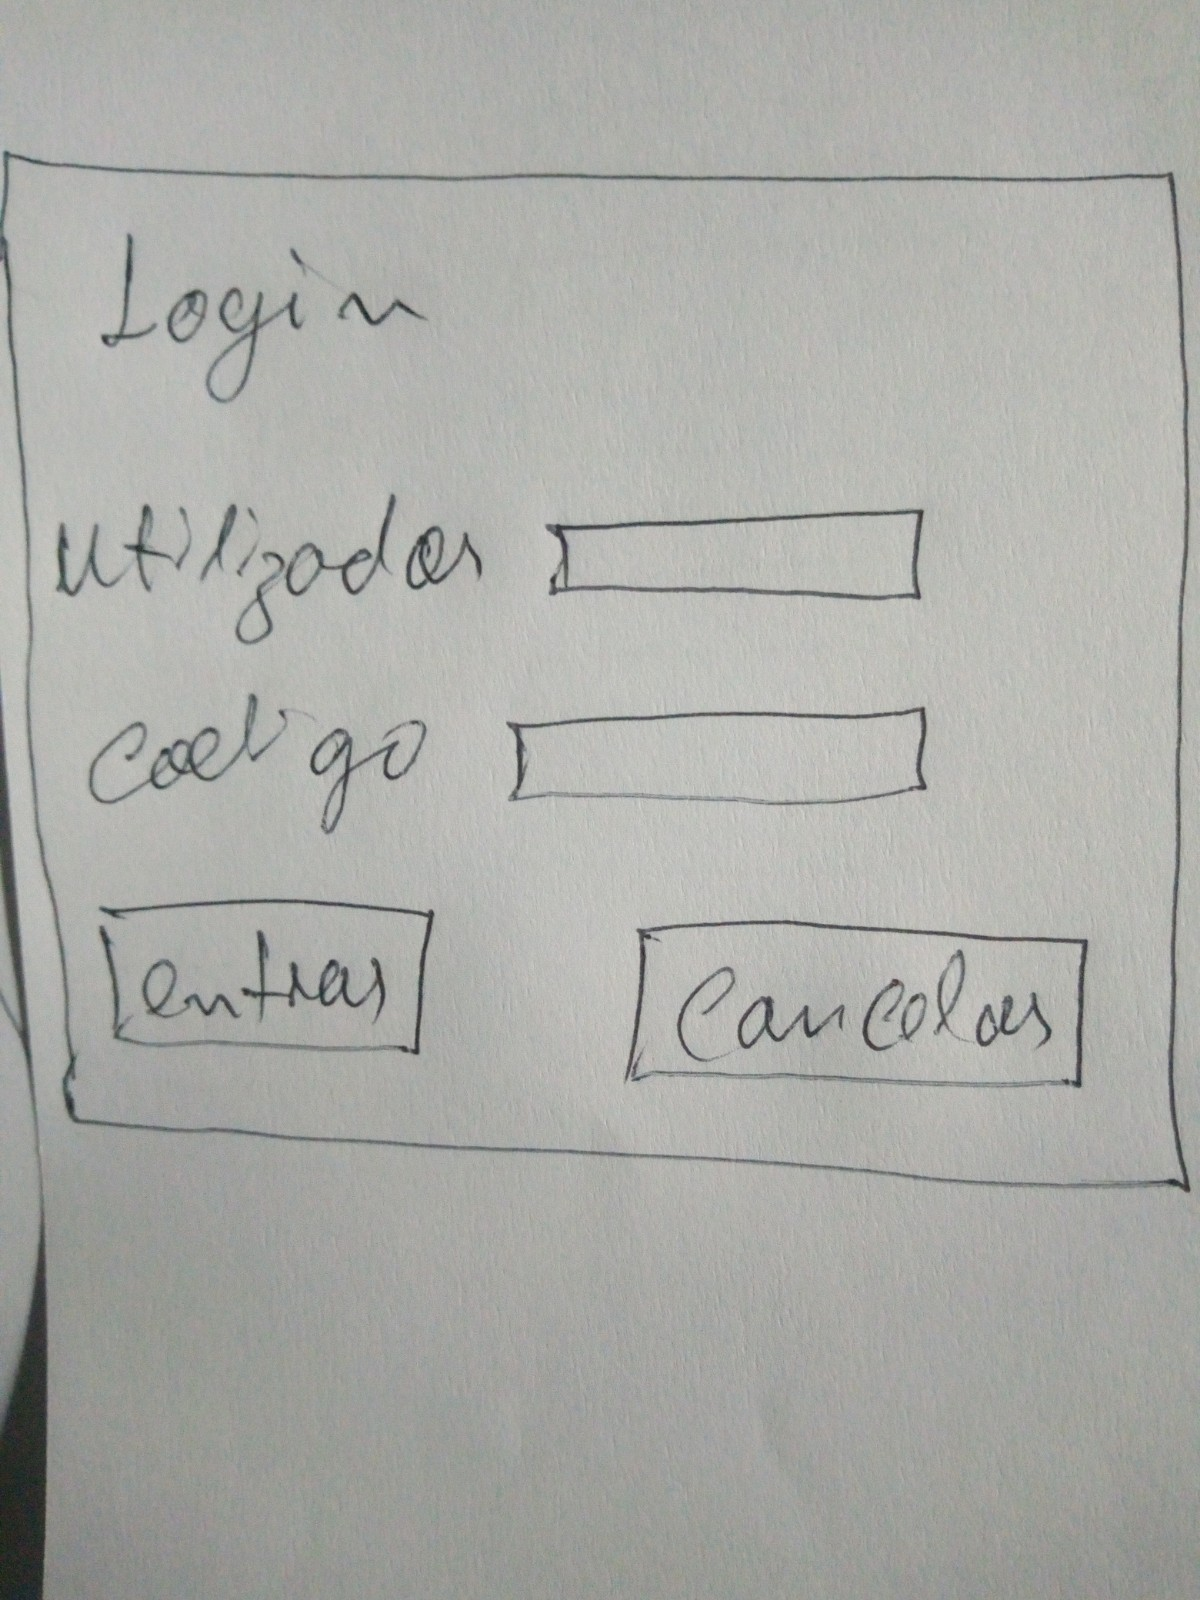 Login
Utilizador
Codigo
entrar
Cancelar